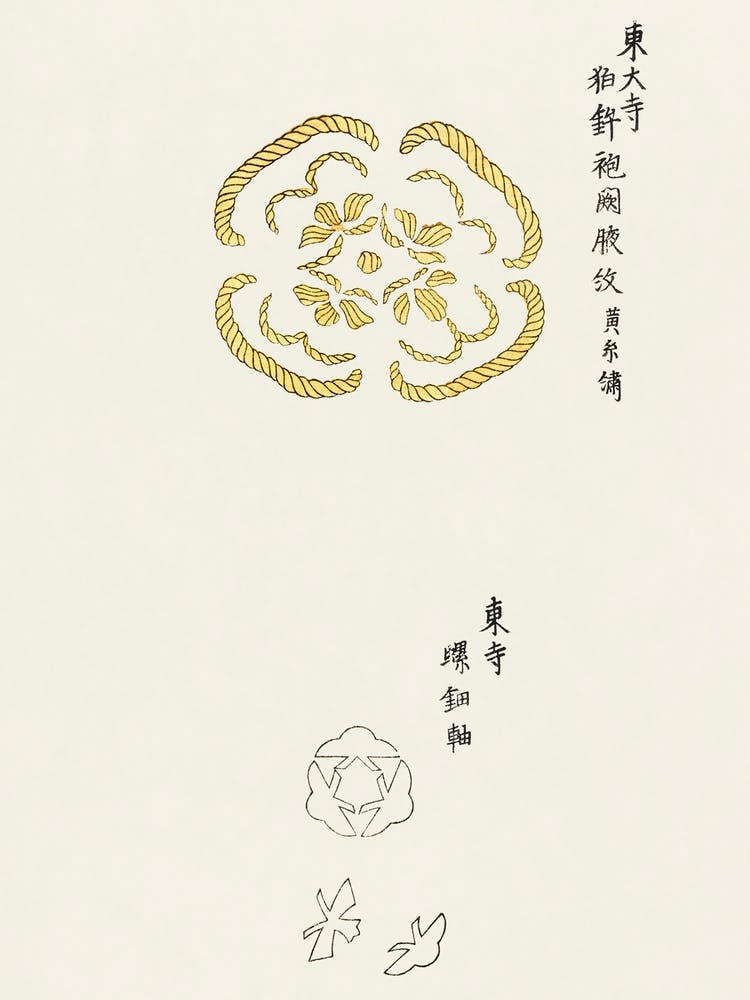 東大寺
狛鉾袍闕腋紋 黄糸繍
東寺
螺鈿軸